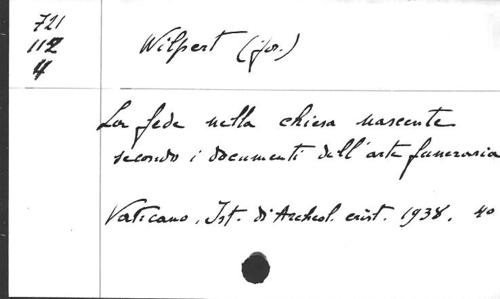 721
112
4
Wilpert (Jos.)
La fede nella chiesa nascente
secondo i documenti dell'arte funeraria
Vaticano. Ist. di Archeol. crist. 1938. 4o